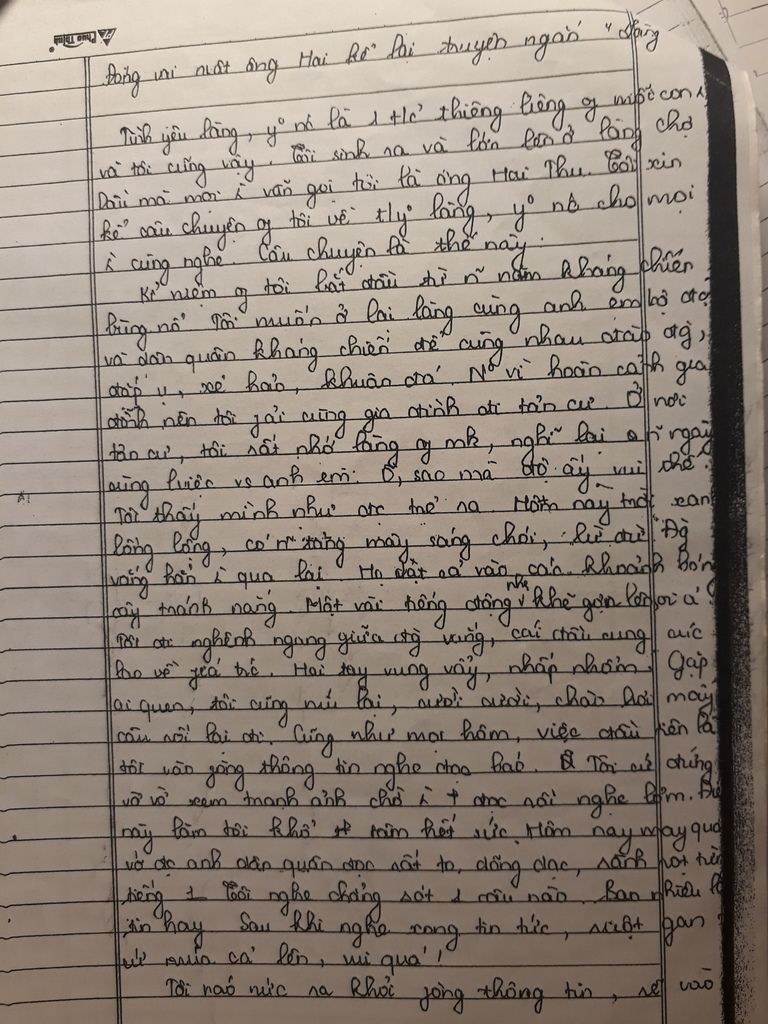 Phúc Thịnh
Đóng vai nvật ông Hai kể lại truyện ngắn "Làng
Tình yêu làng, yº nc là 1 t/cº thiêng liêng of mỗi con
và tôi cũng vậy. Tôi sinh ra và lớn lên ở làng chợ
Dầu mà mọi i vẫn gọi tôi là ông Hai Thu. Tôi xin
kể câu chuyện of tôi về t/yº làng, yº nc cho mọi
i cùng nghe. Câu chuyện là thế này.
Kỉ niệm of tôi bắt đầu từ ñ năm kháng chiến
bùng nổ. Tôi muốn ở lại làng cùng anh em bộ đội
và dân quân kháng chiến để cùng nhau đắp đg,
đắp ụ, xẻ hào, khuân đá. Nº vì hoàn cảnh gia
đình nên tôi fải cùng gia đình đi tản cư. Ở nơi
tản cư, tôi rất nhớ làng of mk, nghĩ lại ñ ngày
cùng việc vs anh em. Ồ, sao mà độ ấy vui thế.
Tôi thấy mình như đc trẻ ra. Hôm nay trời xan
lồng lộng, có ñ tảng mây sáng chói, lừ đừ. Đg
vắng hẳn i qua lại. Họ dạt cả vào các khoảnh bóng
cây tránh nắng. Một vài tiếng động nhẹ khẽ gợn lên oi ả
Tôi đi nghênh ngang giữa đg vắng, cái đầu cung cúc
lao về fía trc. Hai tay vung vẩy, nhấp nhổm. Gặp
ai quen, tôi cũng níu lại, cười cười, chào hỏi mấy
câu rồi lại đi. Cũng như mọi hôm, việc đầu tiên là
tôi vào fòng thông tin nghe đọc báo. Tôi cứ đứng
vờ vờ xem tranh ảnh chờ i t đọc rồi nghe lỏm. Điề
này làm tôi khổ tâm hết sức. Hôm nay may quá
vớ đc anh dân quân đọc rất to, dõng dạc, rành rọt từng
tiếng 1. Tôi nghe chẳng sót 1 câu nào. Bao nhiêu là
tin hay. Sau khi nghe xong tin tức, ruột gan
cứ múa cả lên, vui quá!
Tôi náo nức ra khỏi fòng thông tin, rẽ vào